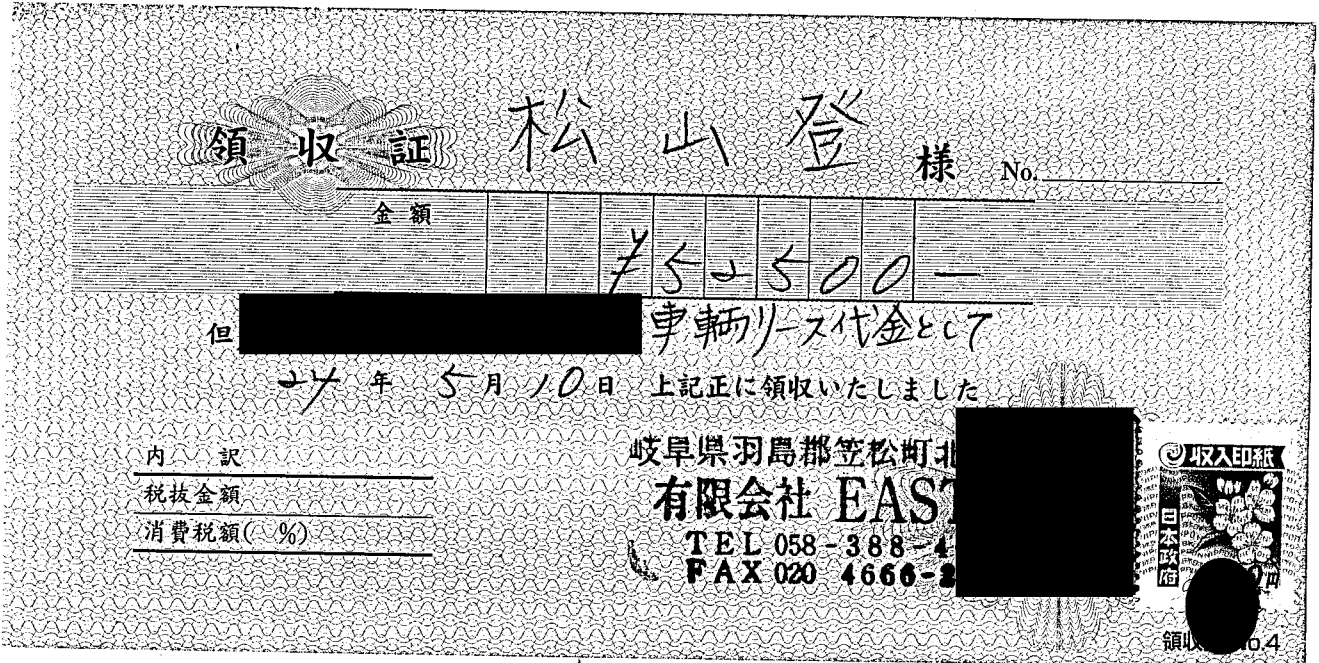 領収証 松山登 様 No.
金額 ¥52500—
但 車輌リース代金として
24年 5月 10日 上記正に領収いたしました
内 訳
税抜金額
消費税額( %)
岐阜県羽島郡笠松町北
有限会社 EAST
TEL 058-388-4
FAX 020 4666-2
収入印紙
日本政府
円
領収 No.4